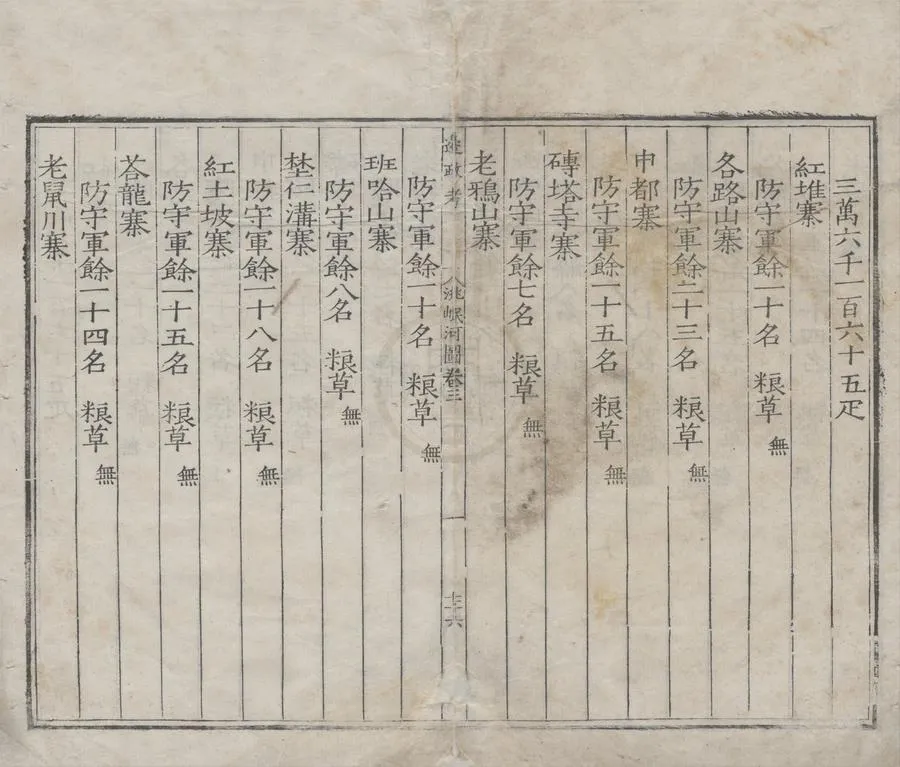 三萬六千一百六十五疋
紅堆寨
防守軍餘一十名　粮草無
各路山寨
防守軍餘二十三名　粮草無
申都寨
防守軍餘一十五名　粮草無
磚塔寺寨
防守軍餘七名　粮草無
老鴉山寨
邊政考　洮岷河圖卷三　十六
防守軍餘一十名　粮草無
班哈山寨
防守軍餘八名　粮草無
埜仁溝寨
防守軍餘一十八名　粮草無
紅土坡寨
防守軍餘一十五名　粮草無
荅龍寨
防守軍餘一十四名　粮草無
老鼠川寨